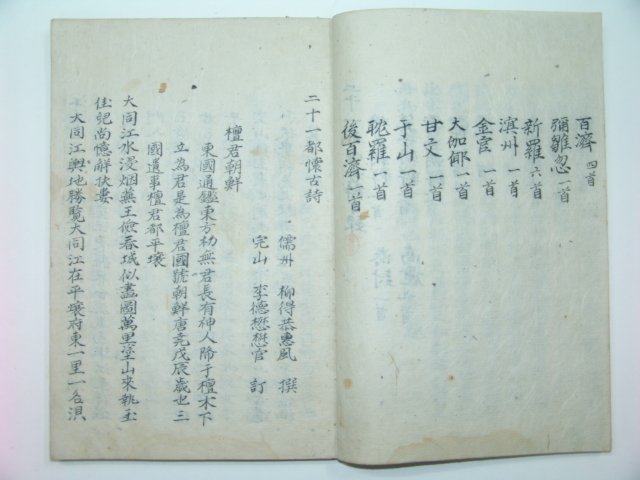 百濟 四首
彌鄒忽 一首
新羅 六首
溟州 一首
金官 一首
大伽倻 一首
甘文 一首
于山 一首
耽羅 一首
後百濟 一首
二十一都懷古詩
儒州 柳得恭惠風 撰
完山 李德懋懋官 訂
檀君朝鮮
東國通鑑東方初無君長有神人降于檀木下
立為君是為檀君國號朝鮮唐堯戊辰歲也三
國遺事檀君都平壤
大同江水浸烟蕪王儉春城似畫圖萬里塗山來執玉
佳兒尚憶解扶婁
大同江輿地勝覽大同江在平壤府東一里一名浿